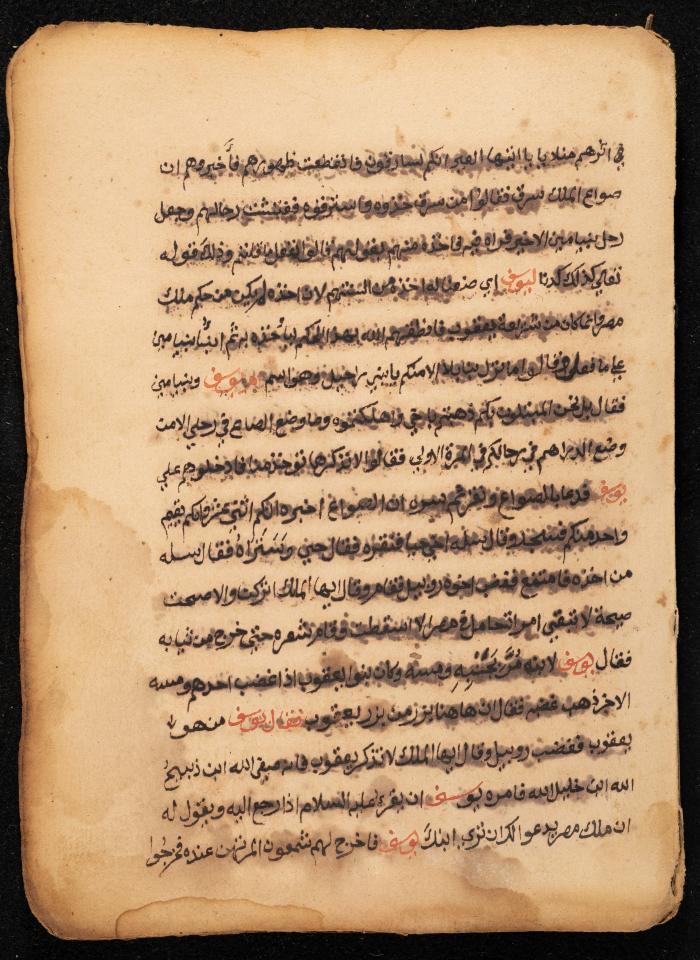 في اثرهم مناديا يا ايتها العير انكم لسارقون فانقطعت ظهورهم فأخبروهم ان
صواع الملك سرق فقالوا من سرق خذوه واسترقوه ففتشت رحالهم وجعل
رحل بنيامين الاخير فراه فيه فاخذه منهم بقولهم قالوا وذلك قوله
تعالى كذلك كدنا ليوسف اي صنعنا له اخذه من لان اخذه لم يكن من حكم ملك
مصر وانما كان من شريعة يعقوب الله بهذا الحكم ليأخذه به ثم بنيامين
على ما فعل وقالوا ما نزل بنا بلا الا منكم يا بني راحيل وهو اسم ام يوسف وبنيامين
فقال بل نحن المبتلون بكم ذهبتم باخي واهلكتموه وما وضع الصاع في رحلي الا من
وضع الدراهم في رحالكم في المرة الاولي فقالوا لا تذكرها نوخذ بها فادخلوهم على
يوسف فدعا بالصواع ونقره ثم ان الصواع اخبره انكم اثنى عشر وانكم بعتم
واحد منكم فسجد وقال سله اخي حيا فنقره فقال حيي وستراه فقال سله
من اخذه فغضب اخوه روبيل فقام وقال ايها الملك اتركنا والا صحت
صيحة لا تبقي امراة حامل في مصر الا سقطت وقام شعره حتى خرج من ثيابه
فقال يوسف لابنه مر بجنبه ومسه وكان بنوا يعقوب اذا غضب احدهم ومسه
الاخر ذهب غضبه فقال ان هاهنا بزر من بزر يعقوب فقال يوسف من هو
يعقوب فغضب روبيل وقال ايها الملك لا تذكر يعقوب فانه صفي الله ابن ذبيح
الله ابن خليل الله فامره يوسف ان يقرء عليه السلام اذا رجع اليه ويقول له
ان ملك مصر يدعو لك ان تري ابنك يوسف فاخرج لهم شمعون المرتهن عنده فخرجوا